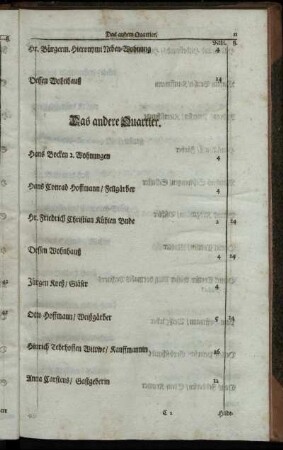 Das andere Quartier. 11
Hr. Bürgerm. Hieronymi Neben-Wohnung 4
Dessen Wohnhauß 14
Das andere Quartier.
Hans Becken 2. Wohnungen 4
Hans Conrad Hoffmann/ Fellgärber 4
Hr. Friedrich Christian Bude 2 14
Dessen Wohnhauß 4 14
Jürgen Gläser 4
Otto Hoffmann/ Weißgärber 5 14
Hinrich Wittwe/ Kauffmannin 16
Anna Carstens/ Gastgeberin 12
C 2 Hildt-